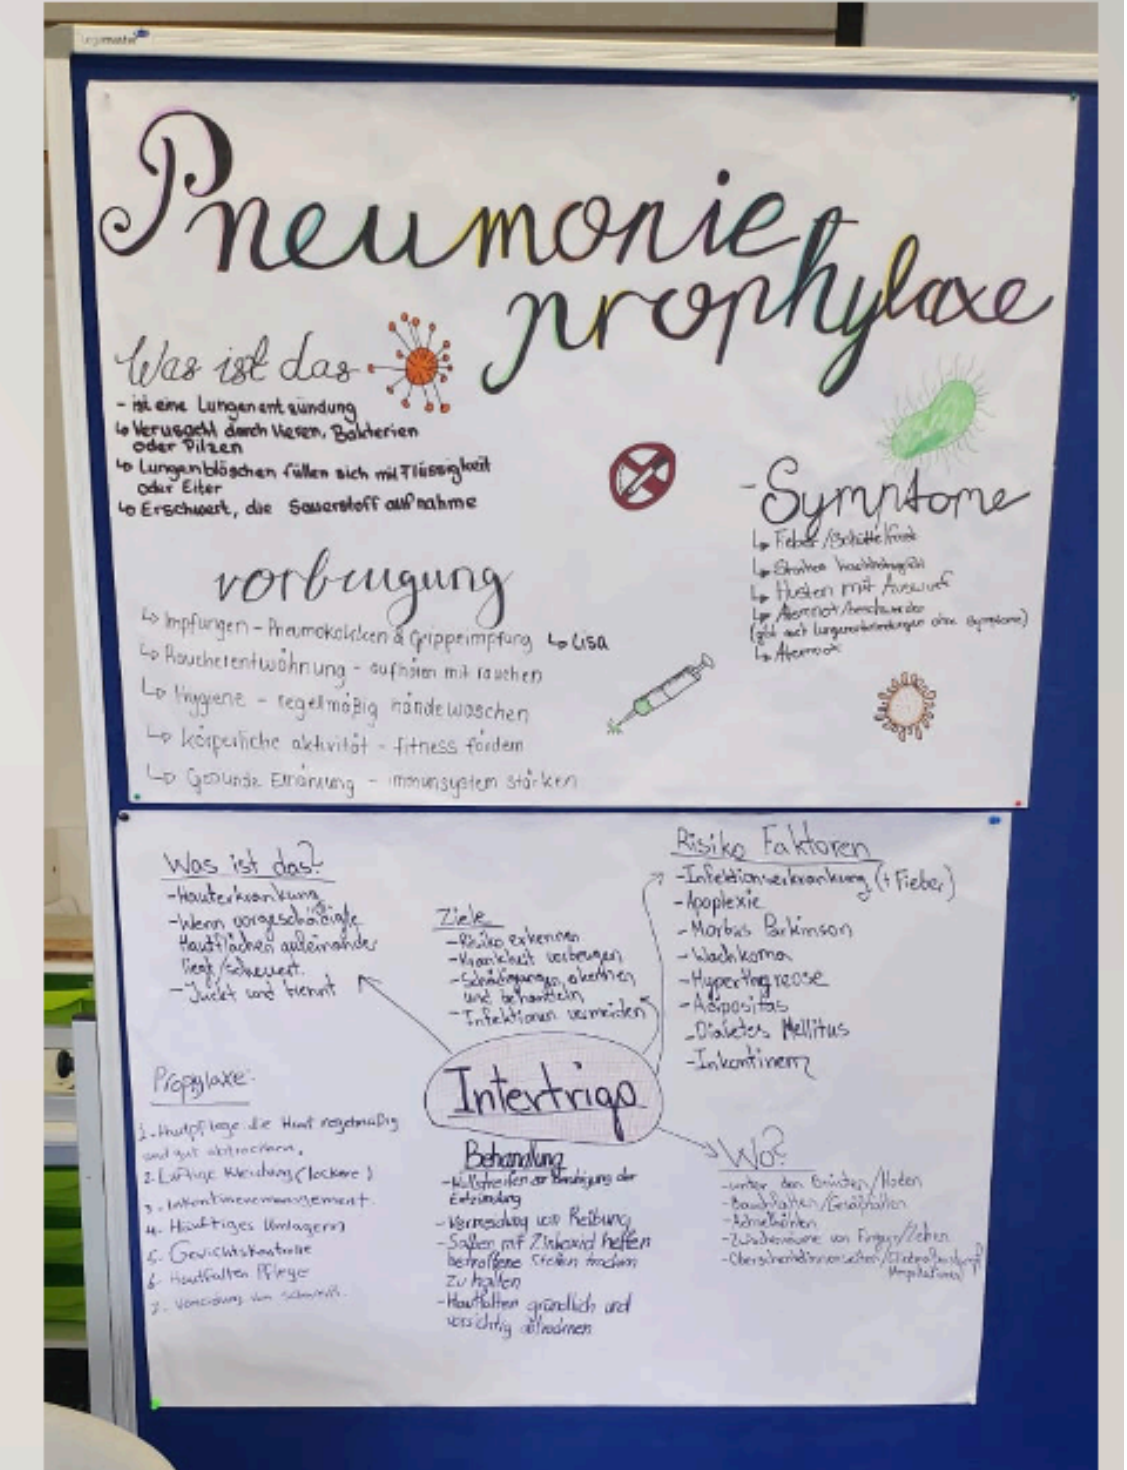 legamaster
Pneumonie
prophylaxe
Was ist das
- ist eine Lungenentzündung
↳ Verusacht durch Vieren, Bakterien
oder Pilzen
↳ Lungenbläschen füllen sich mit Flüssigkeit
oder Eiter
↳ Erschwert, die Sauerstoff aufnahme
- Symptome
↳ Fieber/Schüttelfrost
↳ Starkes
↳ Husten mit Auswurf
↳ Atemnot/beschwerden
(gibt auch Lungenentzündungen ohne Symptome)
↳ Atemnot
vorbeugung
↳ Impfungen - Pneumokokken & Grippeimpfung ↳ Lisa
↳ Raucherentwöhnung - aufhören mit rauchen
↳ Hygiene - regelmäßig händewaschen
↳ körperliche aktivität - fitness fördern
↳ Gesunde Ernärung - immunsystem stärken
Was ist das?
- Hauterkrankung
- Wenn vorgeschädigte
Hautflächen aufeinander
liegt/scheuert.
- Juckt und brennt
Ziele
- Risiko erkennen
- Krankheit vorbeugen
- Schädigungen erkennen
und behandeln
- Infektionen vermeiden
Risiko Faktoren
- Infektionserkrankung (+ Fieber)
- Apoplexie
- Morbus Parkinson
- Wachkoma
- Hyperthyreose
- Adipositas
- Diabetes Mellitus
- Inkontinenz
Intertrigo
Propylaxe:
1. Hautpflege die Haut regelmäßig
und gut abtrocknen.
2. Luftige Kleidung (lockere)
3. Inkontinenzmanagement.
4. Häuftiges Umlagern
5. Gewichtskontrolle
6. Hautfalten Pflege
7. Vermeidung von Schweiß.
Behandlung
- Mullstreifen zur Beruhigung der
Entzündung
- Vermeidung von Reibung
- Salben mit Zinkoxid helfen
betroffene Stellen trocken
zu halten
- Hautfalten gründlich und
vorsichtig abtrocknen
Wo?
- unter den Brüsten/Hoden
- Bauchfalten/Gesäßfalten
- Achselhöhlen
- Zwischenräume von Finger/Zehen
- Oberschenkelinnenseiten